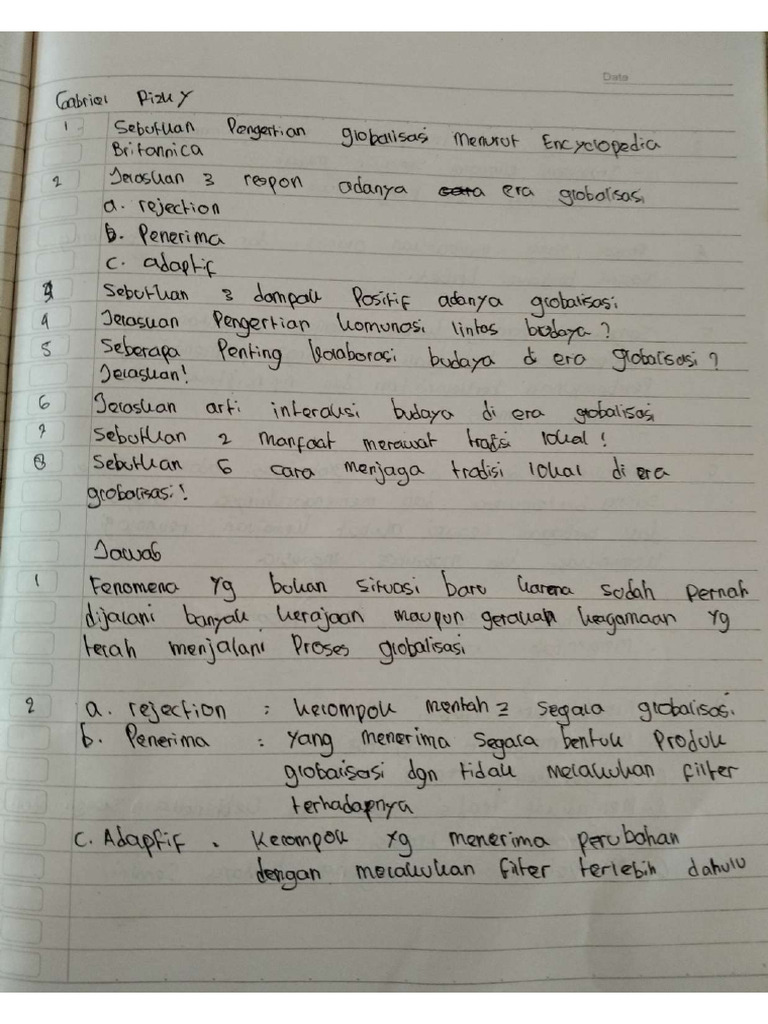 Date
Gabriel Rizky
1 Sebutkan Pengertian globalisasi menurut Encyclopedia
Britannica
2 Jelaskan 3 respon adanya era globalisasi
a. rejection
b. Penerima
c. adaptif
3 Sebutkan 3 dampak Positif adanya globalisasi
4 Jelaskan Pengertian komunasi lintas budaya?
5 Seberapa Penting kolaborasi budaya di era globalisasi?
Jelaskan!
6 Jelaskan arti interaksi budaya di era globalisasi
7 Sebutkan 2 manfaat merawat tradisi lokal!
8 Sebutkan 6 cara menjaga tradisi lokal di era
globalisasi!
Jawab
1 Fenomena yg bukan situasi baru karena sudah pernah
dijalani banyak kerajaan maupun gerakan keagamaan yg
telah menjalani Proses globalisasi
2 a. rejection : kelompok mentah2 segala globalisasi.
b. Penerima : yang menerima segala bentuk Produk
globalsasi dgn tidak melakukan filter
terhadapnya
c. Adaptif . Kelompok yg menerima perubahan
dengan melakukan filter terlebih dahulu